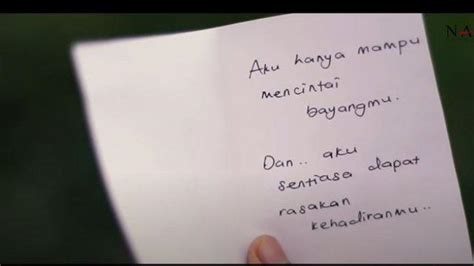 NA
Aku hanya mampu
mencintai
bayangmu.
Dan.. aku
sentiasa dapat
rasakan
kehadiranmu..